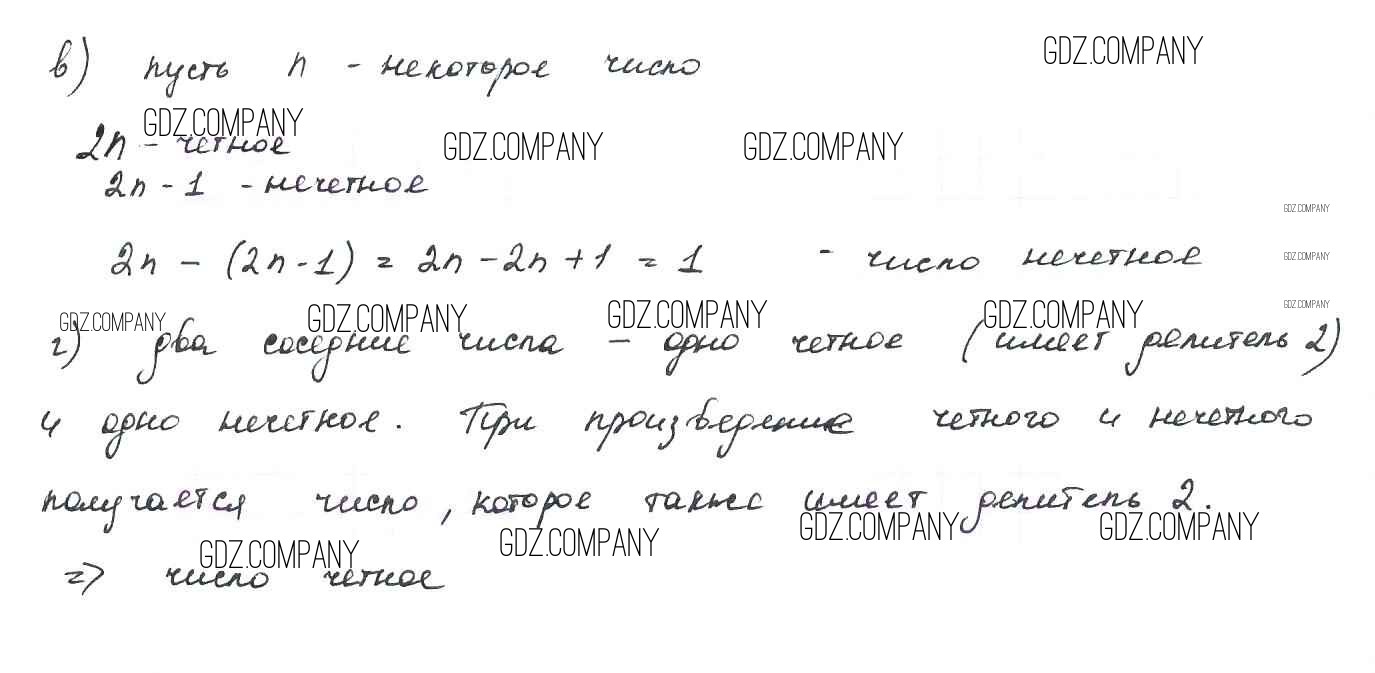 в) пусть n - некоторое число
GDZ.COMPANY
GDZ.COMPANY
2n - четное
GDZ.COMPANY
GDZ.COMPANY
2n - 1 - нечетное
GDZ.COMPANY
2n - (2n - 1) = 2n - 2n + 1 = 1 - число нечетное
GDZ.COMPANY
GDZ.COMPANY
GDZ.COMPANY
GDZ.COMPANY
GDZ.COMPANY
GDZ.COMPANY
г) два соседние числа - одно четное (имеет делитель 2)
и одно нечетное. При произведение четного и нечетного
получается число, которое также имеет делитель 2.
GDZ.COMPANY
GDZ.COMPANY
GDZ.COMPANY
GDZ.COMPANY
=> число четное